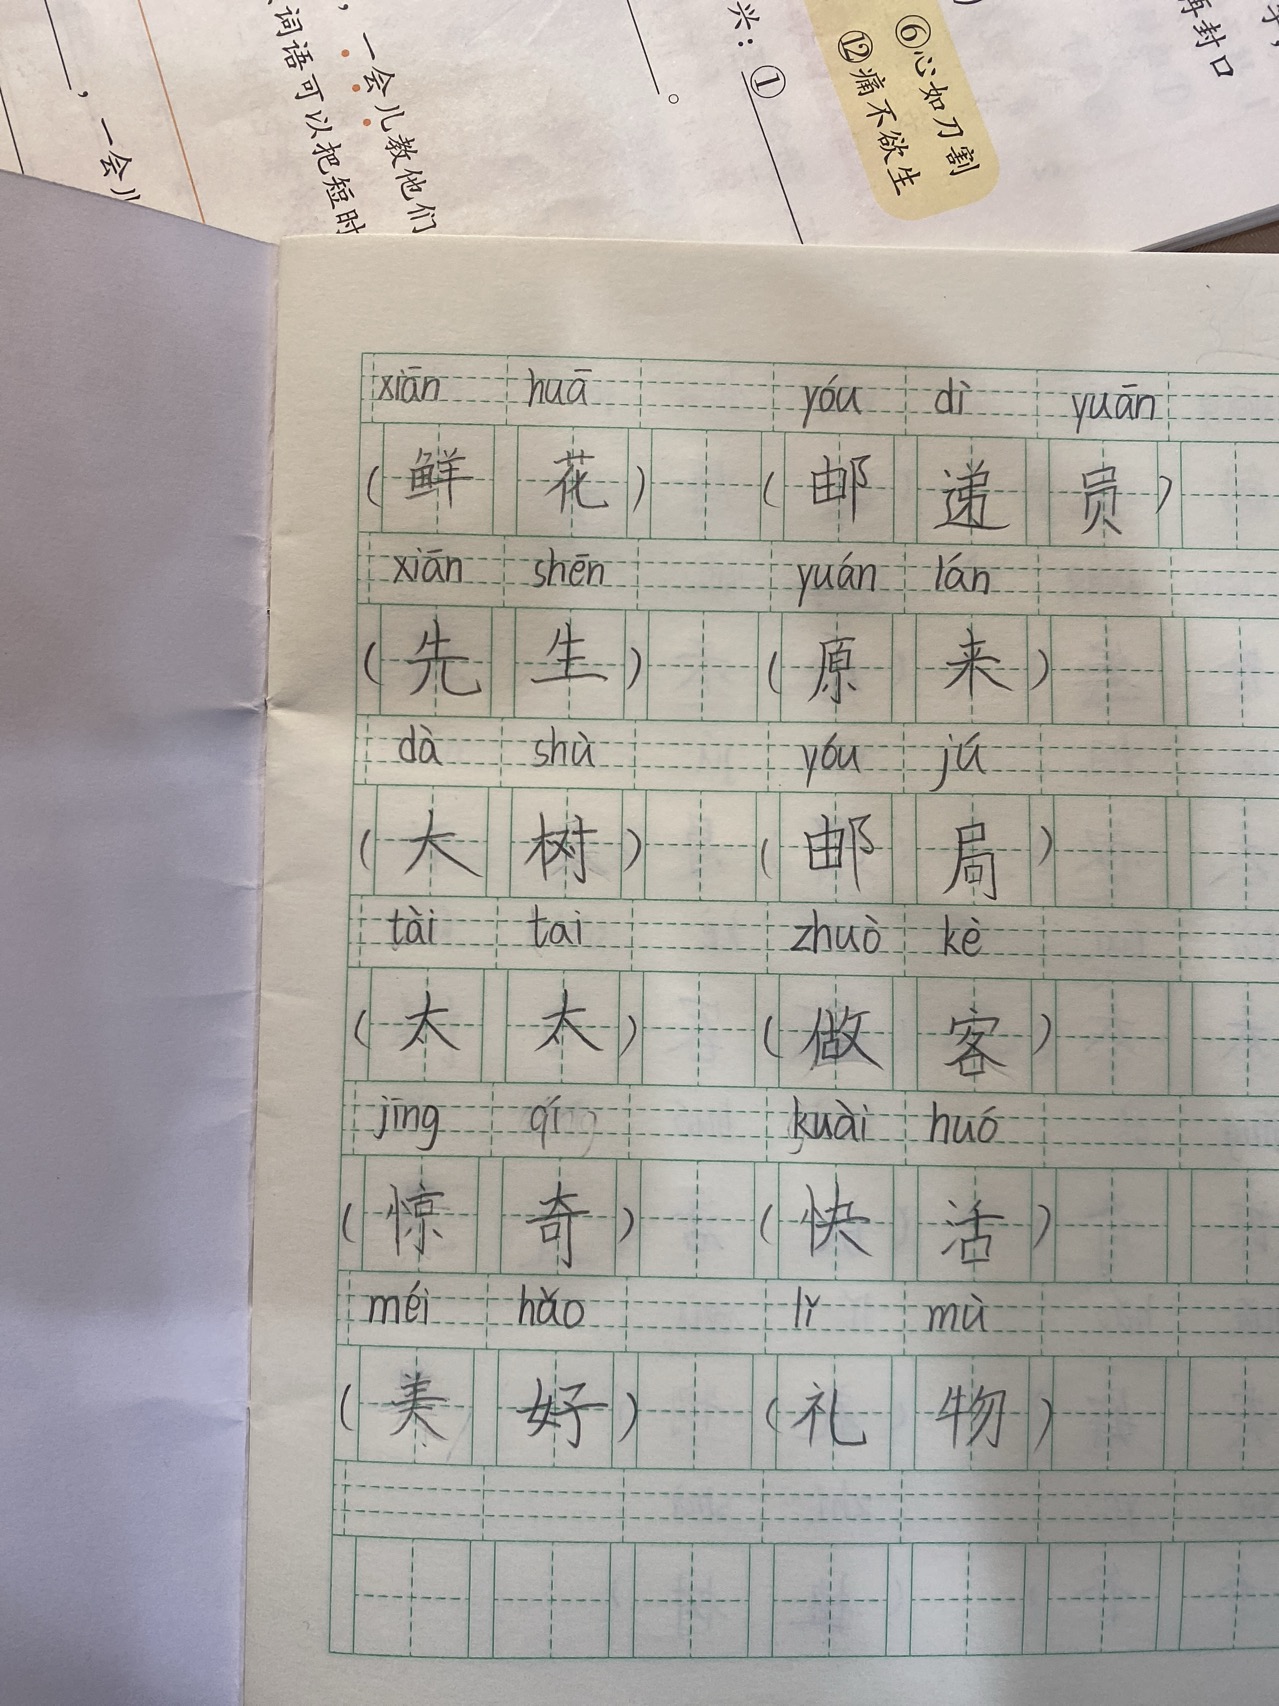 ，一会儿教他们
词语可以把短时
，一会儿
。
兴：①
⑥心如刀割
⑫痛不欲生
再封口
xiān huā yóu dì yuān
（鲜花）（邮递员）
xiān shēn yuán lán
（先生）（原来）
dà shù yóu jú
（大树）（邮局）
tài tai zhuò kè
（太太）（做客）
jīng qí kuài huó
（惊奇）（快活）
méi hǎo lǐ mù
（美好）（礼物）